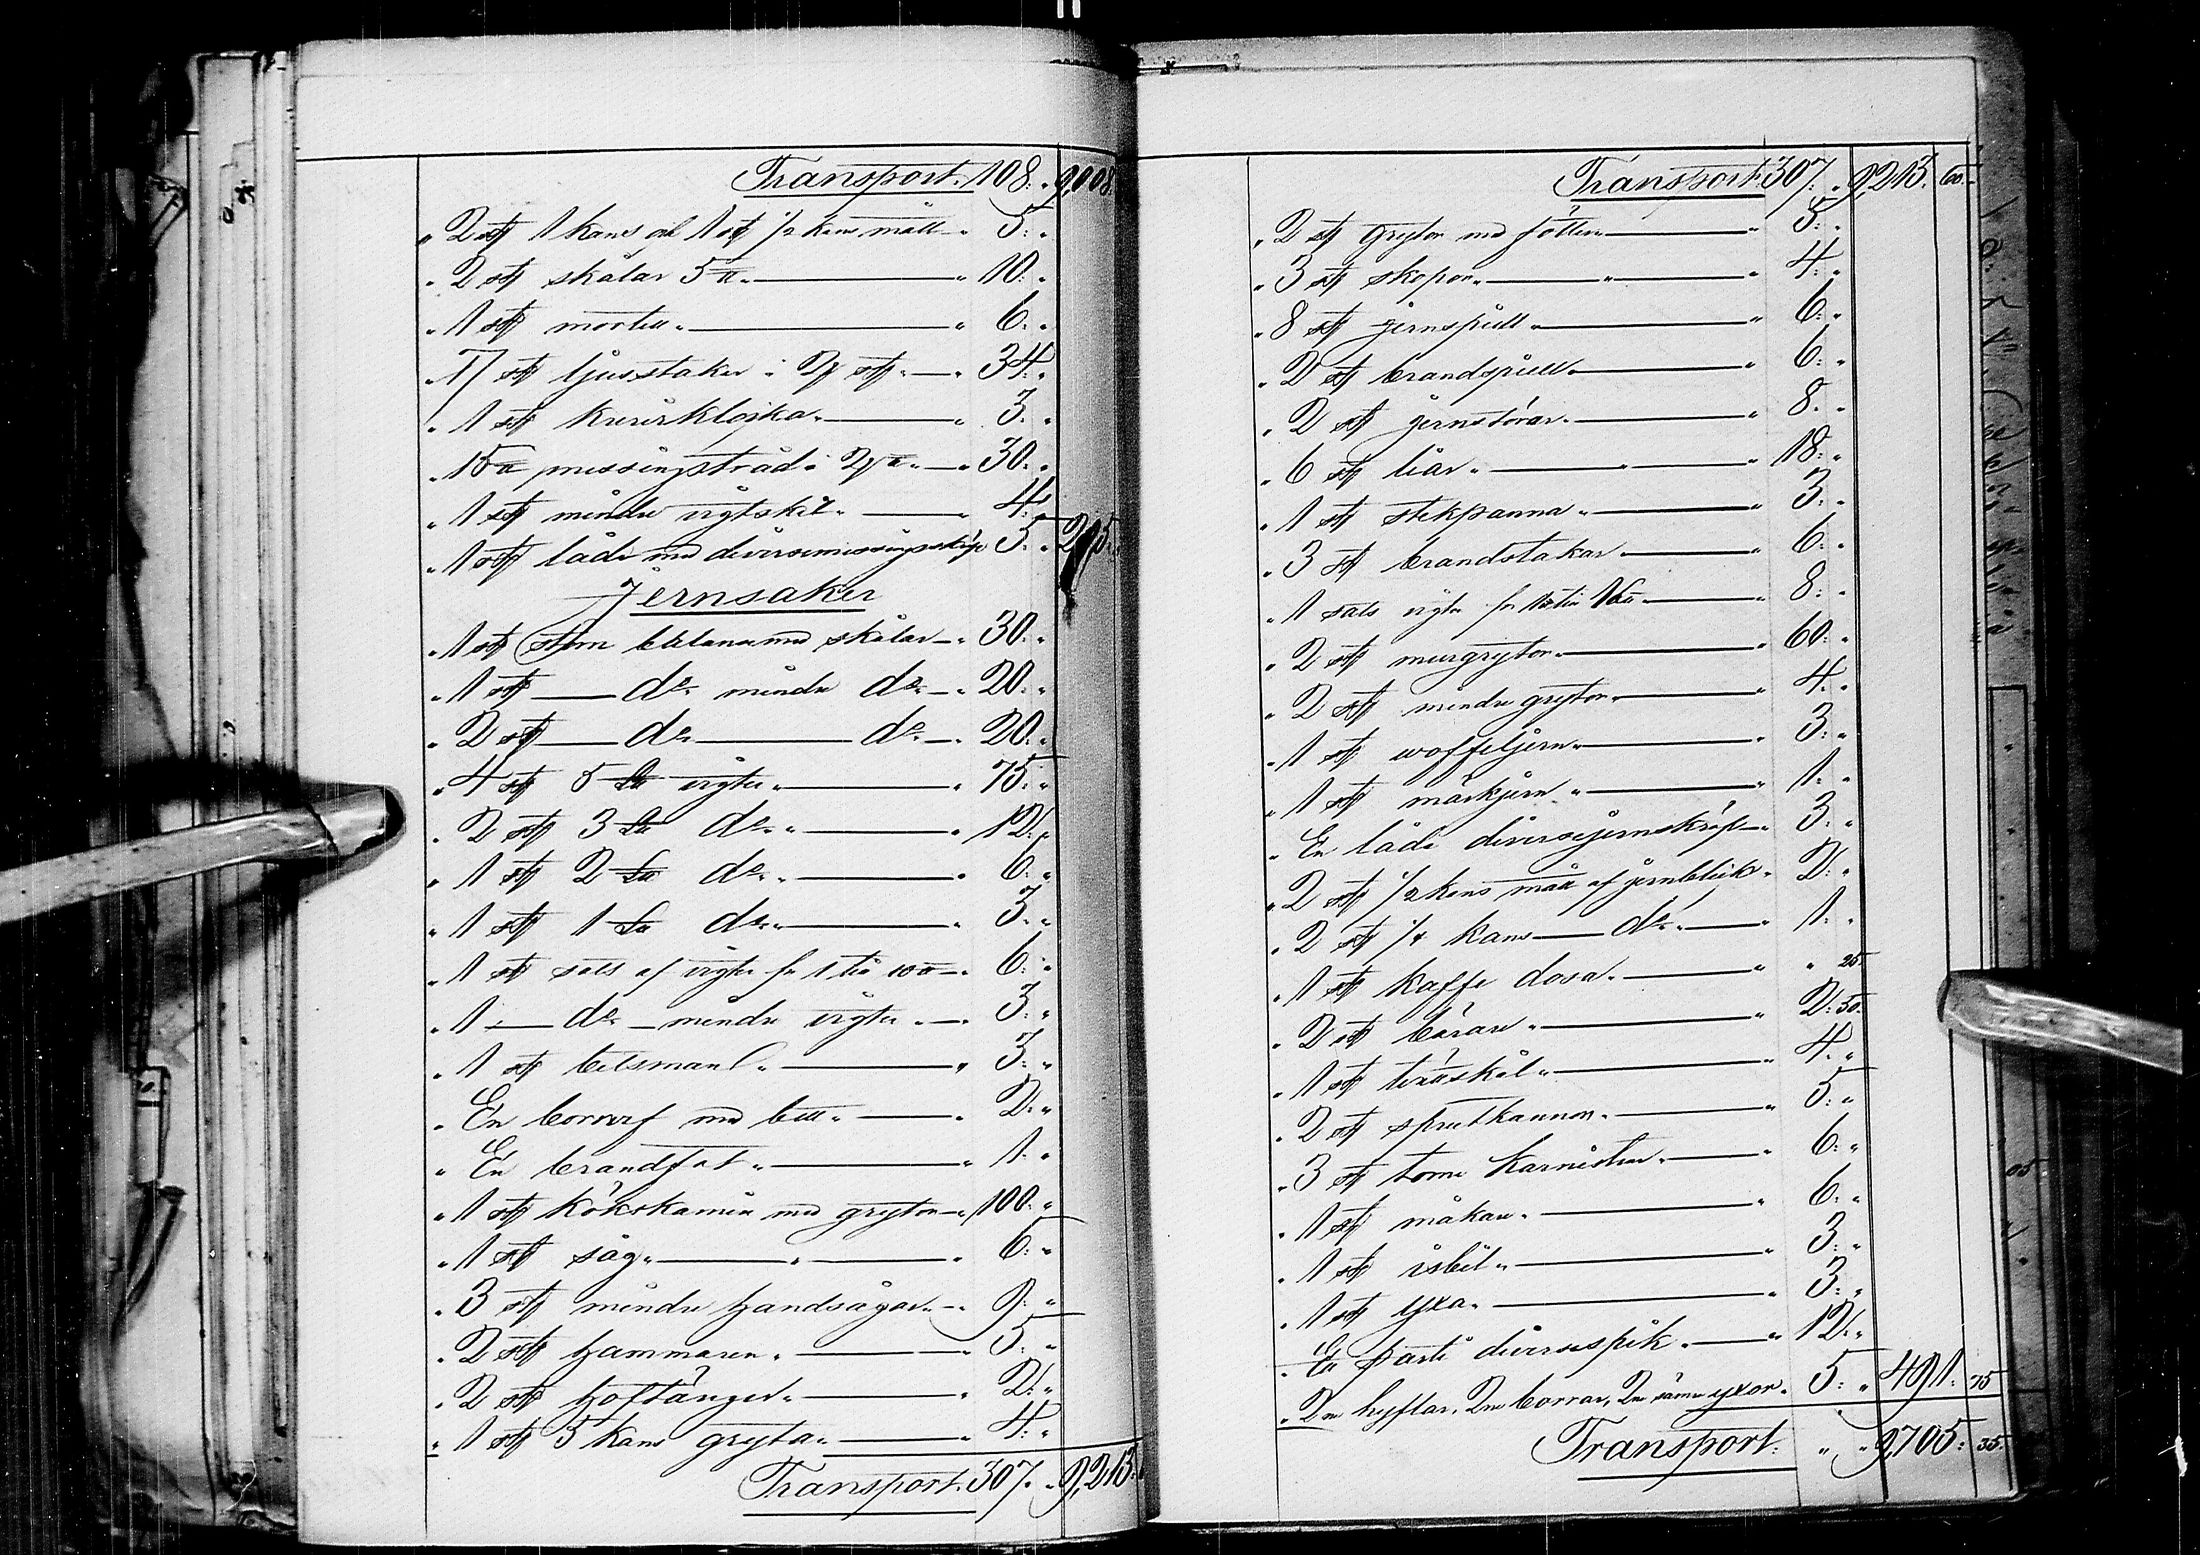 Transport. 108. " 9,008.
" 2 st 1 kans och 1 st 1/2 kans mått " 5. "
" 2 st skålar 5 ℔ " 10. "
" 1 st mortel " " 6. "
" 17 st ljusstakar à 2 st " 34. "
" 1 st klåjka " 3. "
" 15 ℔ messingstråd à 2 ℔ " 30. "
" 1 st mindre vigtskål " 4. "
" 1 st låda med diverse messingsskräp 5. " 205.
Jernsaker
" 1 st större balans med skålar " 30. "
" 1 st — do mindre do " 20. "
" 2 st — do — do " 20. "
" 4 st 5 L℔ vigter " 75. "
" 2 st 3 L℔ do " 12. "
" 1 st 2 L℔ do " 6. "
" 1 st 1 L℔ do " 3. "
" 1 st sats af vigter fr 1 till 10 ℔ " 6. "
" 1 — do — mindre vigter " 3. "
" 1 st betsman " 3. "
" En borrvef med bett " 2. "
" En brandfat " 1. "
" 1 st kökskamin med grytor " 100. "
" 1 st såg " 6. "
" 3 st mindre handsågar " 9. "
" 2 st hammaren " 5. "
" 2 st hoftänger " 2. "
" 1 st 5 kans gryta " 4. "
Transport. 307. " 9,213.
Transport. 307. " 9,213. 60.
" 2 st grytor med fötter " 5. "
" 3 st skopor " 4. "
" 8 st jernspett " 6. "
" 2 st brandspett " 6. "
" 2 st jernstörar " 8. "
" 6 st liar " 18. "
" 1 st stekpanna " 3. "
" 3 st brandstakar " 6. "
" 1 sats vigter fr till 16 ℔ " 8. "
" 2 st murgrytor " 60. "
" 2 st mindre grytor " 4. "
" 1 st woffeljern " 3. "
" 1 st märkjern " 1. "
" En låda diverse jernskräp " 3. "
" 2 st 1/2 kans mått af jernbleck " 2. "
" 2 st 1/4 kans — do " 1. "
" 1 st kaffe dosa " " 25.
" 2 st bårar " 2. 50.
" 1 st teräskål " 4. "
" 2 st sprutkannor " 5. "
" 3 st tome karnister " 6. "
" 1 st måkare " 6. "
" 1 st isbil " 3. "
" 1 st yxa " 3. "
" En parti diverse spik " 12. "
" 2ne hyflar, 2ne borrar, 2ne sämre yxor " 5. " 491. 75
Transport. " " 9,705. 35.